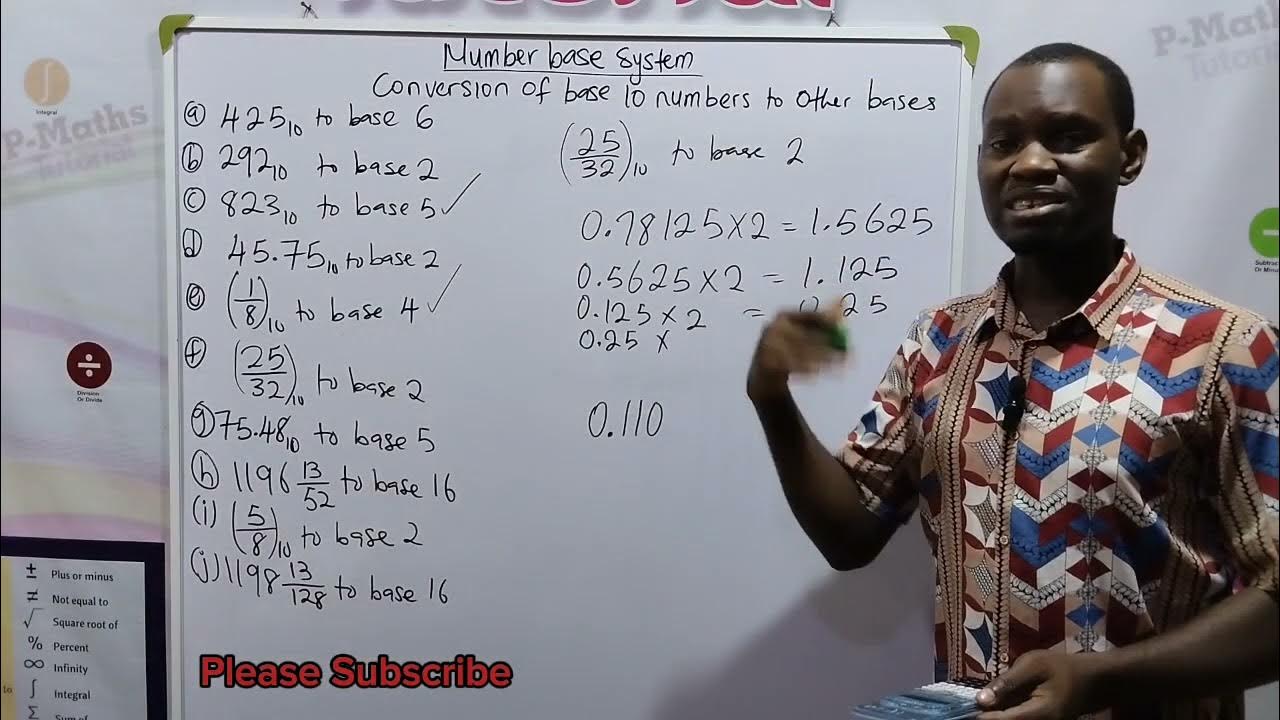 P-Maths
Tutorial
Integral
P-Maths
Number base System
Conversion of base 10 numbers to other bases
(a) 425₁₀ to base 6
(b) 292₁₀ to base 2
(c) 823₁₀ to base 5 ✓
(d) 45.75₁₀ to base 2
(e) (1/8)₁₀ to base 4 ✓
(f) (25/32)₁₀ to base 2
(g) 75.48₁₀ to base 5
(h) 1196 13/52 to base 16
(i) (5/8)₁₀ to base 2
(j) 1198 13/128 to base 16
(25/32)₁₀ to base 2
0.78125 × 2 = 1.5625
0.5625 × 2 = 1.125
0.125 × 2 = 25
0.25 ×
0.110
Division
Or Divide
± Plus or minus
≠ Not equal to
√ Square root of
% Percent
∞ Infinity
∫ Integral
Σ Sum of
to
Please Subscribe